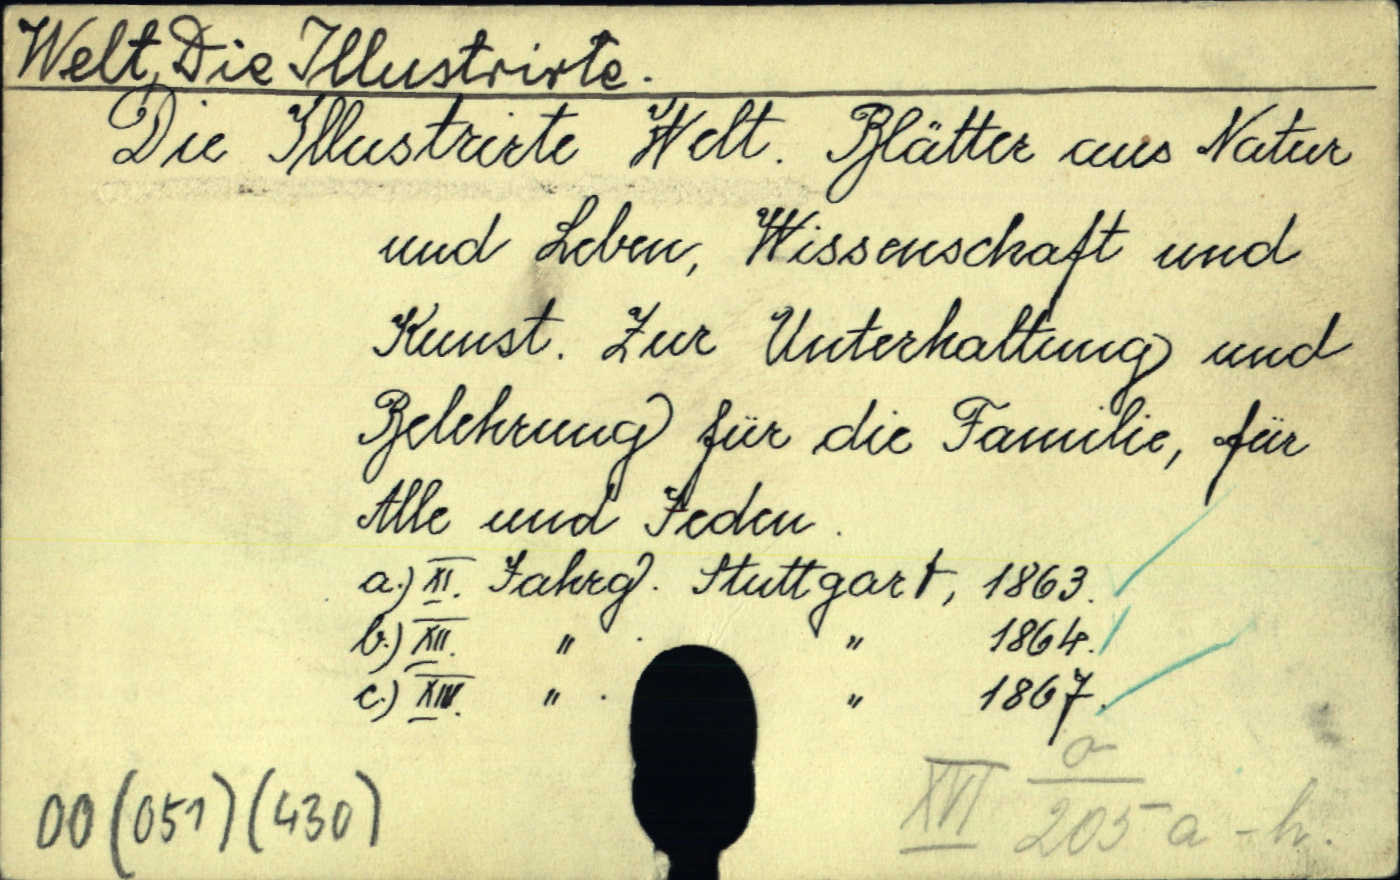 Welt, Die Illustrirte.
Die Illustrirte Welt. Blätter aus Natur
und Leben, Wissenschaft und
Kunst. Zur Unterhaltung und
Belehrung für die Familie, für
Alle und Jeden.
a.) XI. Jahrg. Stuttgart, 1863.
b.) XII. " . " 1864.
c.) XIV. " . " 1867.
XVI a
205 a - h.
00 (051) (430)